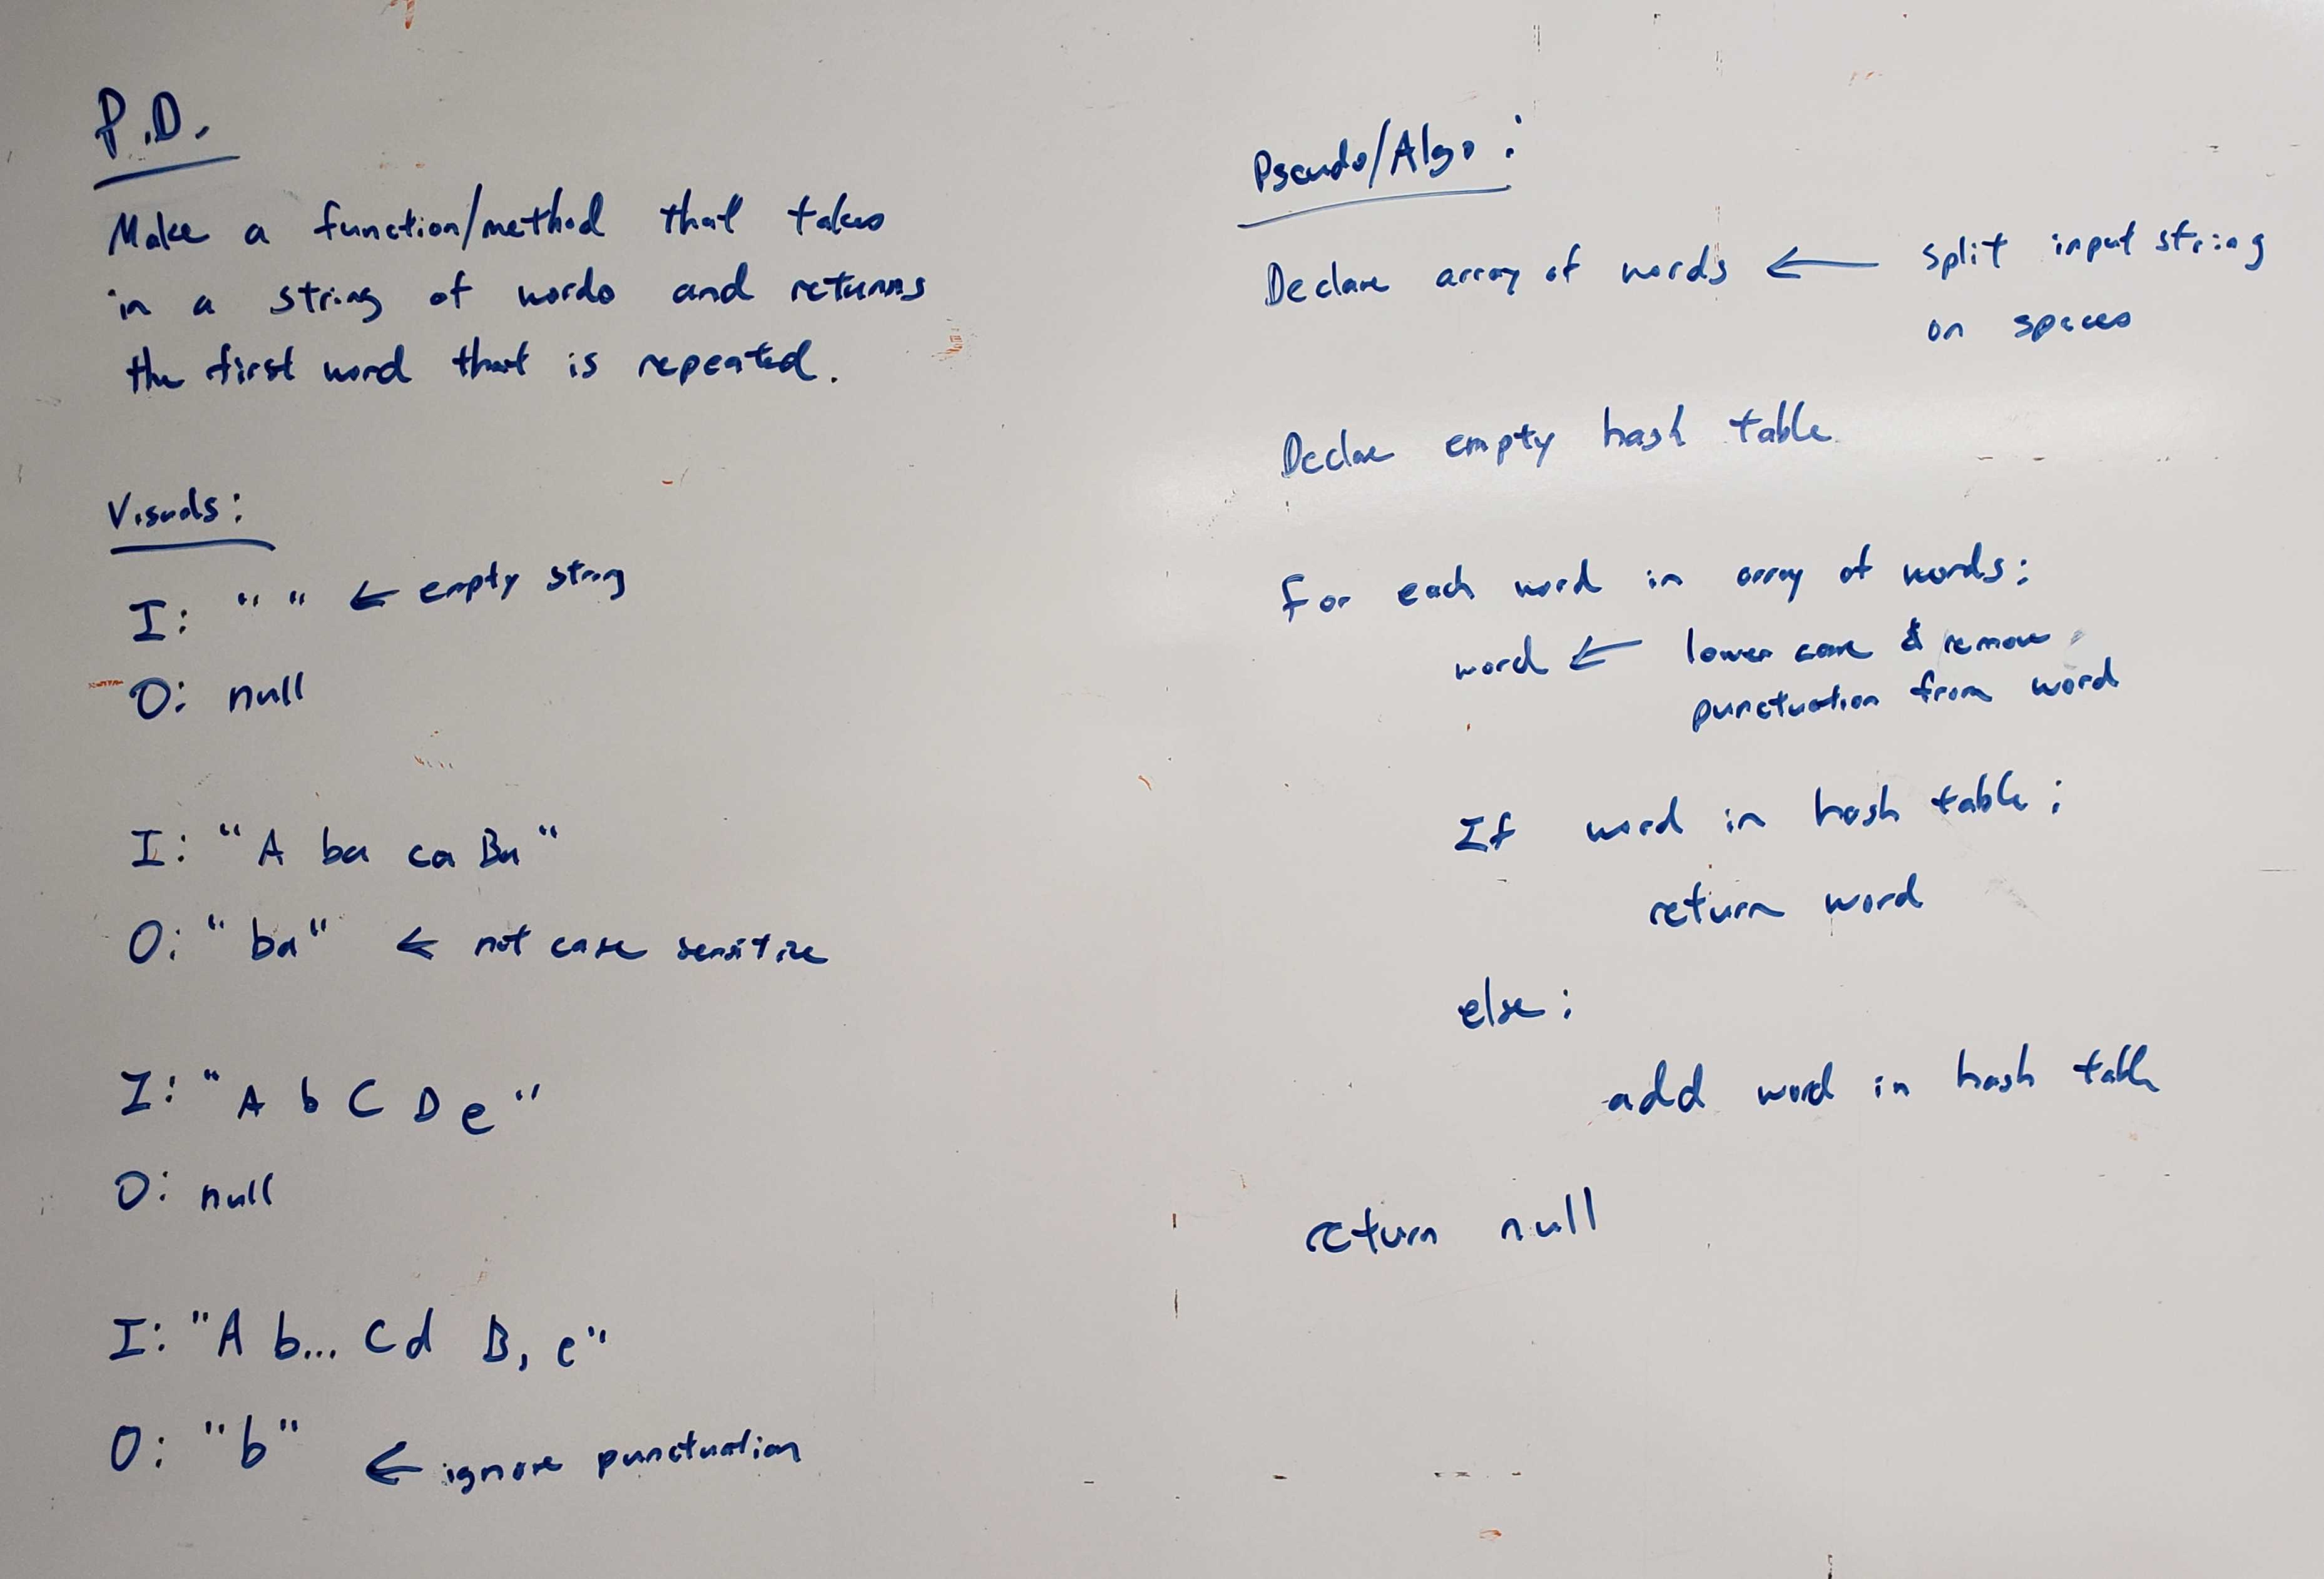 P.D.
Make a function/method that takes
in a string of words and returns
the first word that is repeated.
Visuals:
I: " " ← empty string
O: null
I: "A ba ca Ba"
O: "ba" ← not case sensitive
I: "A b C D e"
O: null
I: "A b... C d B, e"
O: "b" ← ignore punctuation
Pseudo/Algo:
Declare array of words ← split input string
on spaces
Declare empty hash table
for each word in array of words:
word ← lower case & remove
punctuation from word
If word in hash table:
return word
else:
add word in hash table
return null